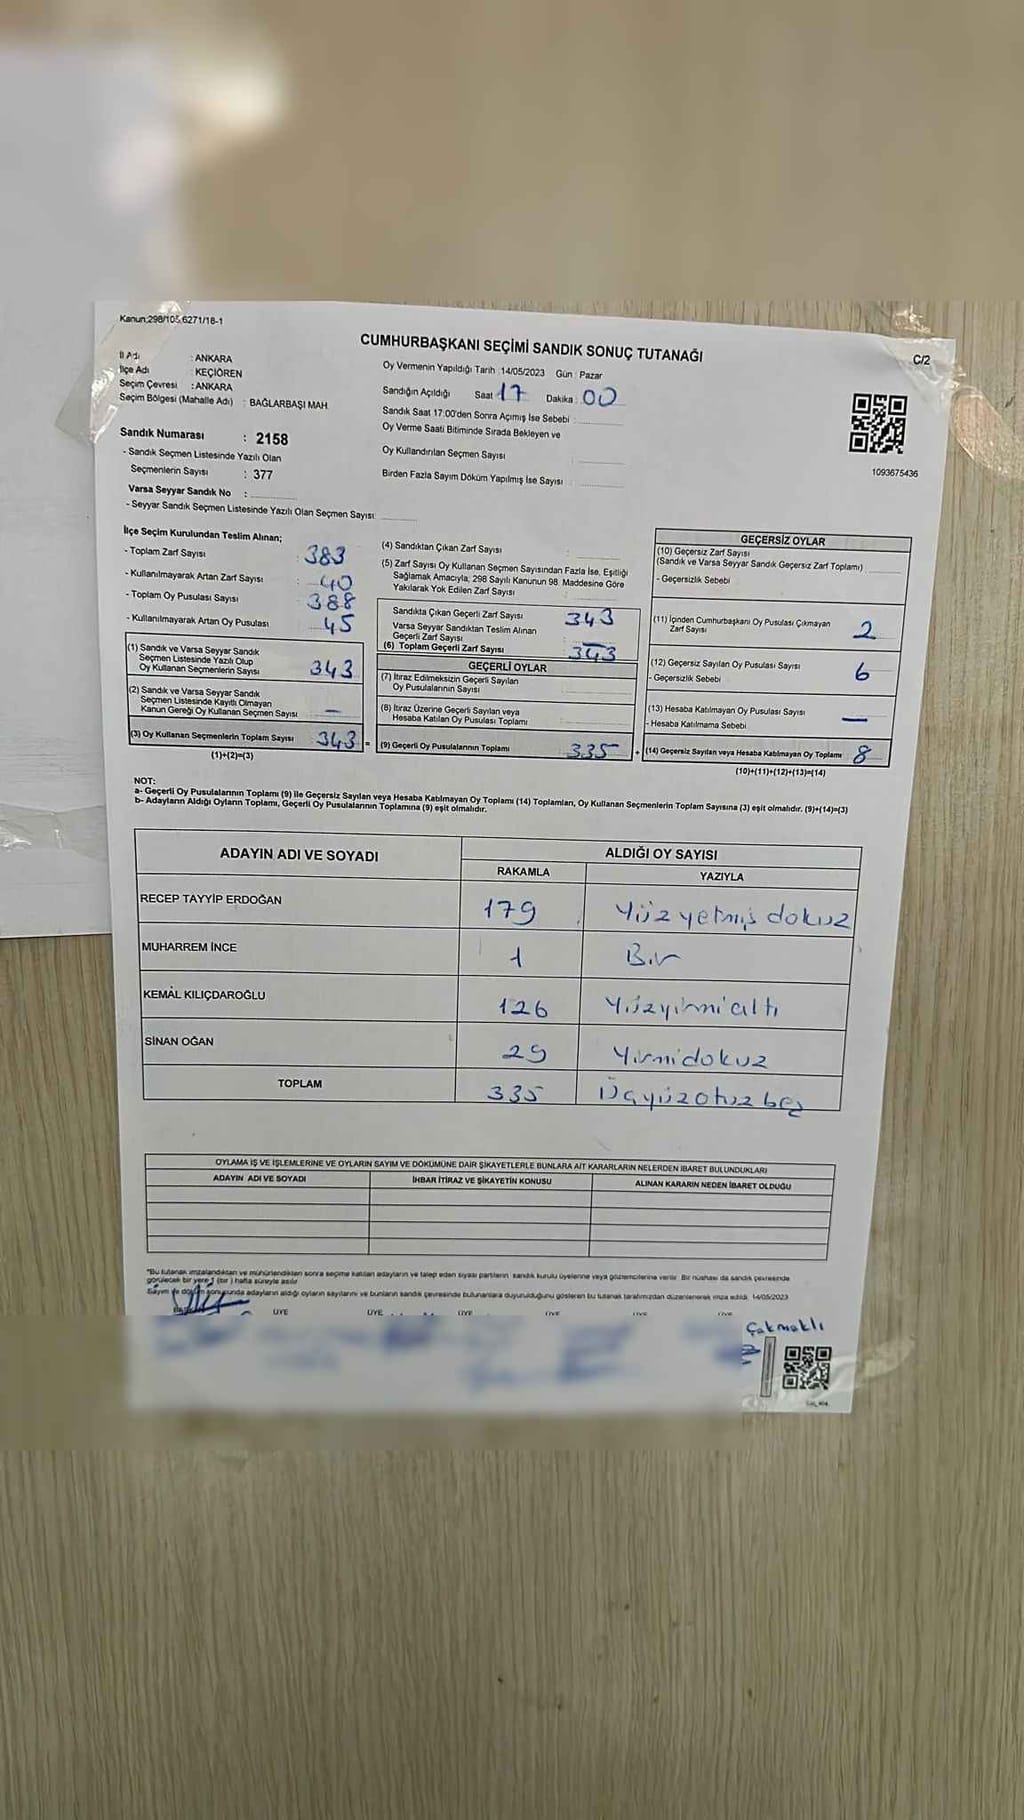 Kanun:298/105,6271/18-1
CUMHURBAŞKANI SEÇİMİ SANDIK SONUÇ TUTANAĞI
C/2
İl Adı : ANKARA
İlçe Adı : KEÇİÖREN
Seçim Çevresi : ANKARA
Seçim Bölgesi (Mahalle Adı) : BAĞLARBAŞI MAH.
Sandık Numarası : 2158
- Sandık Seçmen Listesinde Yazılı Olan
Seçmenlerin Sayısı : 377
Varsa Seyyar Sandık No :
- Seyyar Sandık Seçmen Listesinde Yazılı Olan Seçmen Sayısı:
Oy Vermenin Yapıldığı Tarih :14/05/2023 Gün : Pazar
Sandığın Açıldığı Saat 17 Dakika : 00
Sandık Saat 17:00'den Sonra Açımış İse Sebebi :
Oy Verme Saati Bitiminde Sırada Bekleyen ve
Oy Kullandırılan Seçmen Sayısı
Birden Fazla Sayım Döküm Yapılmış İse Sayısı :
1093675436
İlçe Seçim Kurulundan Teslim Alınan;
- Toplam Zarf Sayısı : 383
- Kullanılmayarak Artan Zarf Sayısı : 40
- Toplam Oy Pusulası Sayısı : 388
- Kullanılmayarak Artan Oy Pusulası : 45
(1) Sandık ve Varsa Seyyar Sandık
Seçmen Listesinde Yazılı Olup
Oy Kullanan Seçmenlerin Sayısı 343
(2) Sandık ve Varsa Seyyar Sandık
Seçmen Listesinde Kayıtlı Olmayan
Kanun Gereği Oy Kullanan Seçmen Sayısı —
(3) Oy Kullanan Seçmenlerin Toplam Sayısı 343 =
(1)+(2)=(3)
(4) Sandıktan Çıkan Zarf Sayısı :
(5) Zarf Sayısı Oy Kullanan Seçmen Sayısından Fazla İse, Eşitliği
Sağlamak Amacıyla, 298 Sayılı Kanunun 98. Maddesine Göre
Yakılarak Yok Edilen Zarf Sayısı :
Sandıkta Çıkan Geçerli Zarf Sayısı : 343
Varsa Seyyar Sandıktan Teslim Alınan
Geçerli Zarf Sayısı : —
(6) Toplam Geçerli Zarf Sayısı : 343
GEÇERLİ OYLAR
(7) İtiraz Edilmeksizin Geçerli Sayılan
Oy Pusulalarının Sayısı :
(8) İtiraz Üzerine Geçerli Sayılan veya
Hesaba Katılan Oy Pusulası Toplamı
(9) Geçerli Oy Pusulalarının Toplamı 335 +
GEÇERSİZ OYLAR
(10) Geçersiz Zarf Sayısı
(Sandık ve Varsa Seyyar Sandık Geçersiz Zarf Toplamı)
- Geçersizlik Sebebi
(11) İçinden Cumhurbaşkanı Oy Pusulası Çıkmayan
Zarf Sayısı 2
(12) Geçersiz Sayılan Oy Pusulası Sayısı 6
- Geçersizlik Sebebi
(13) Hesaba Katılmayan Oy Pusulası Sayısı —
- Hesaba Katılmama Sebebi
(14) Geçersiz Sayılan veya Hesaba Katılmayan Oy Toplamı 8
(10)+(11)+(12)+(13)=(14)
NOT:
a- Geçerli Oy Pusulalarının Toplamı (9) ile Geçersiz Sayılan veya Hesaba Katılmayan Oy Toplamı (14) Toplamları, Oy Kullanan Seçmenlerin Toplam Sayısına (3) eşit olmalıdır. (9)+(14)=(3)
b- Adayların Aldığı Oyların Toplamı, Geçerli Oy Pusulalarının Toplamına (9) eşit olmalıdır.
ADAYIN ADI VE SOYADI ALDIĞI OY SAYISI
RAKAMLA YAZIYLA
RECEP TAYYİP ERDOĞAN 179 Yüz yetmiş dokuz
MUHARREM İNCE 1 Bir
KEMAL KILIÇDAROĞLU 126 Yüzyirmi altı
SİNAN OĞAN 29 Yirmidokuz
TOPLAM 335 Üçyüzotuz beş
OYLAMA İŞ VE İŞLEMLERİNE VE OYLARIN SAYIM VE DÖKÜMÜNE DAİR ŞİKAYETLERLE BUNLARA AİT KARARLARIN NELERDEN İBARET BULUNDUKLARI
ADAYIN ADI VE SOYADI İHBAR İTİRAZ VE ŞİKAYETİN KONUSU ALINAN KARARIN NEDEN İBARET OLDUĞU
*Bu tutanak imzalandıktan ve mühürlendikten sonra seçime katılan adayların ve talep eden siyasi partilerin sandık kurulu üyelerine veya gözlemcilerine verilir. Bir nüshası da sandık çevresinde
görülecek bir yere 1 (bir) hafta süreyle asılır
Sayım ve döküm sonucunda adayların aldığı oyların sayılarını ve bunların sandık çevresinde bulunanlara duyurulduğunu gösteren bu tutanak tarafımızdan düzenlenerek imza edildi. 14/05/2023
ÜYE ÜYE ÜYE ÜYE ÜYE ÜYE
Çakmaklı